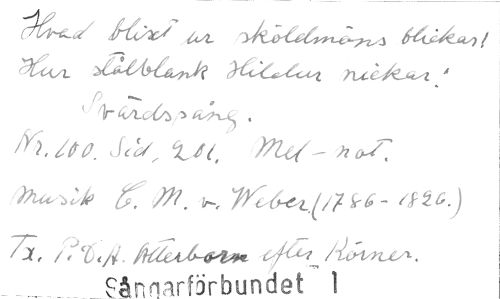 Hvad blixt ur sköldmöns blickar!
Hur stålblank Hildur nickar!
Svärdssång.
Nr. 100. Sid, 201. Mel-not.
Musik C. M. v. Weber. (1786-1826.)
Tx. P. D. A. Atterbom efter Körner.
Sångarförbundet 1